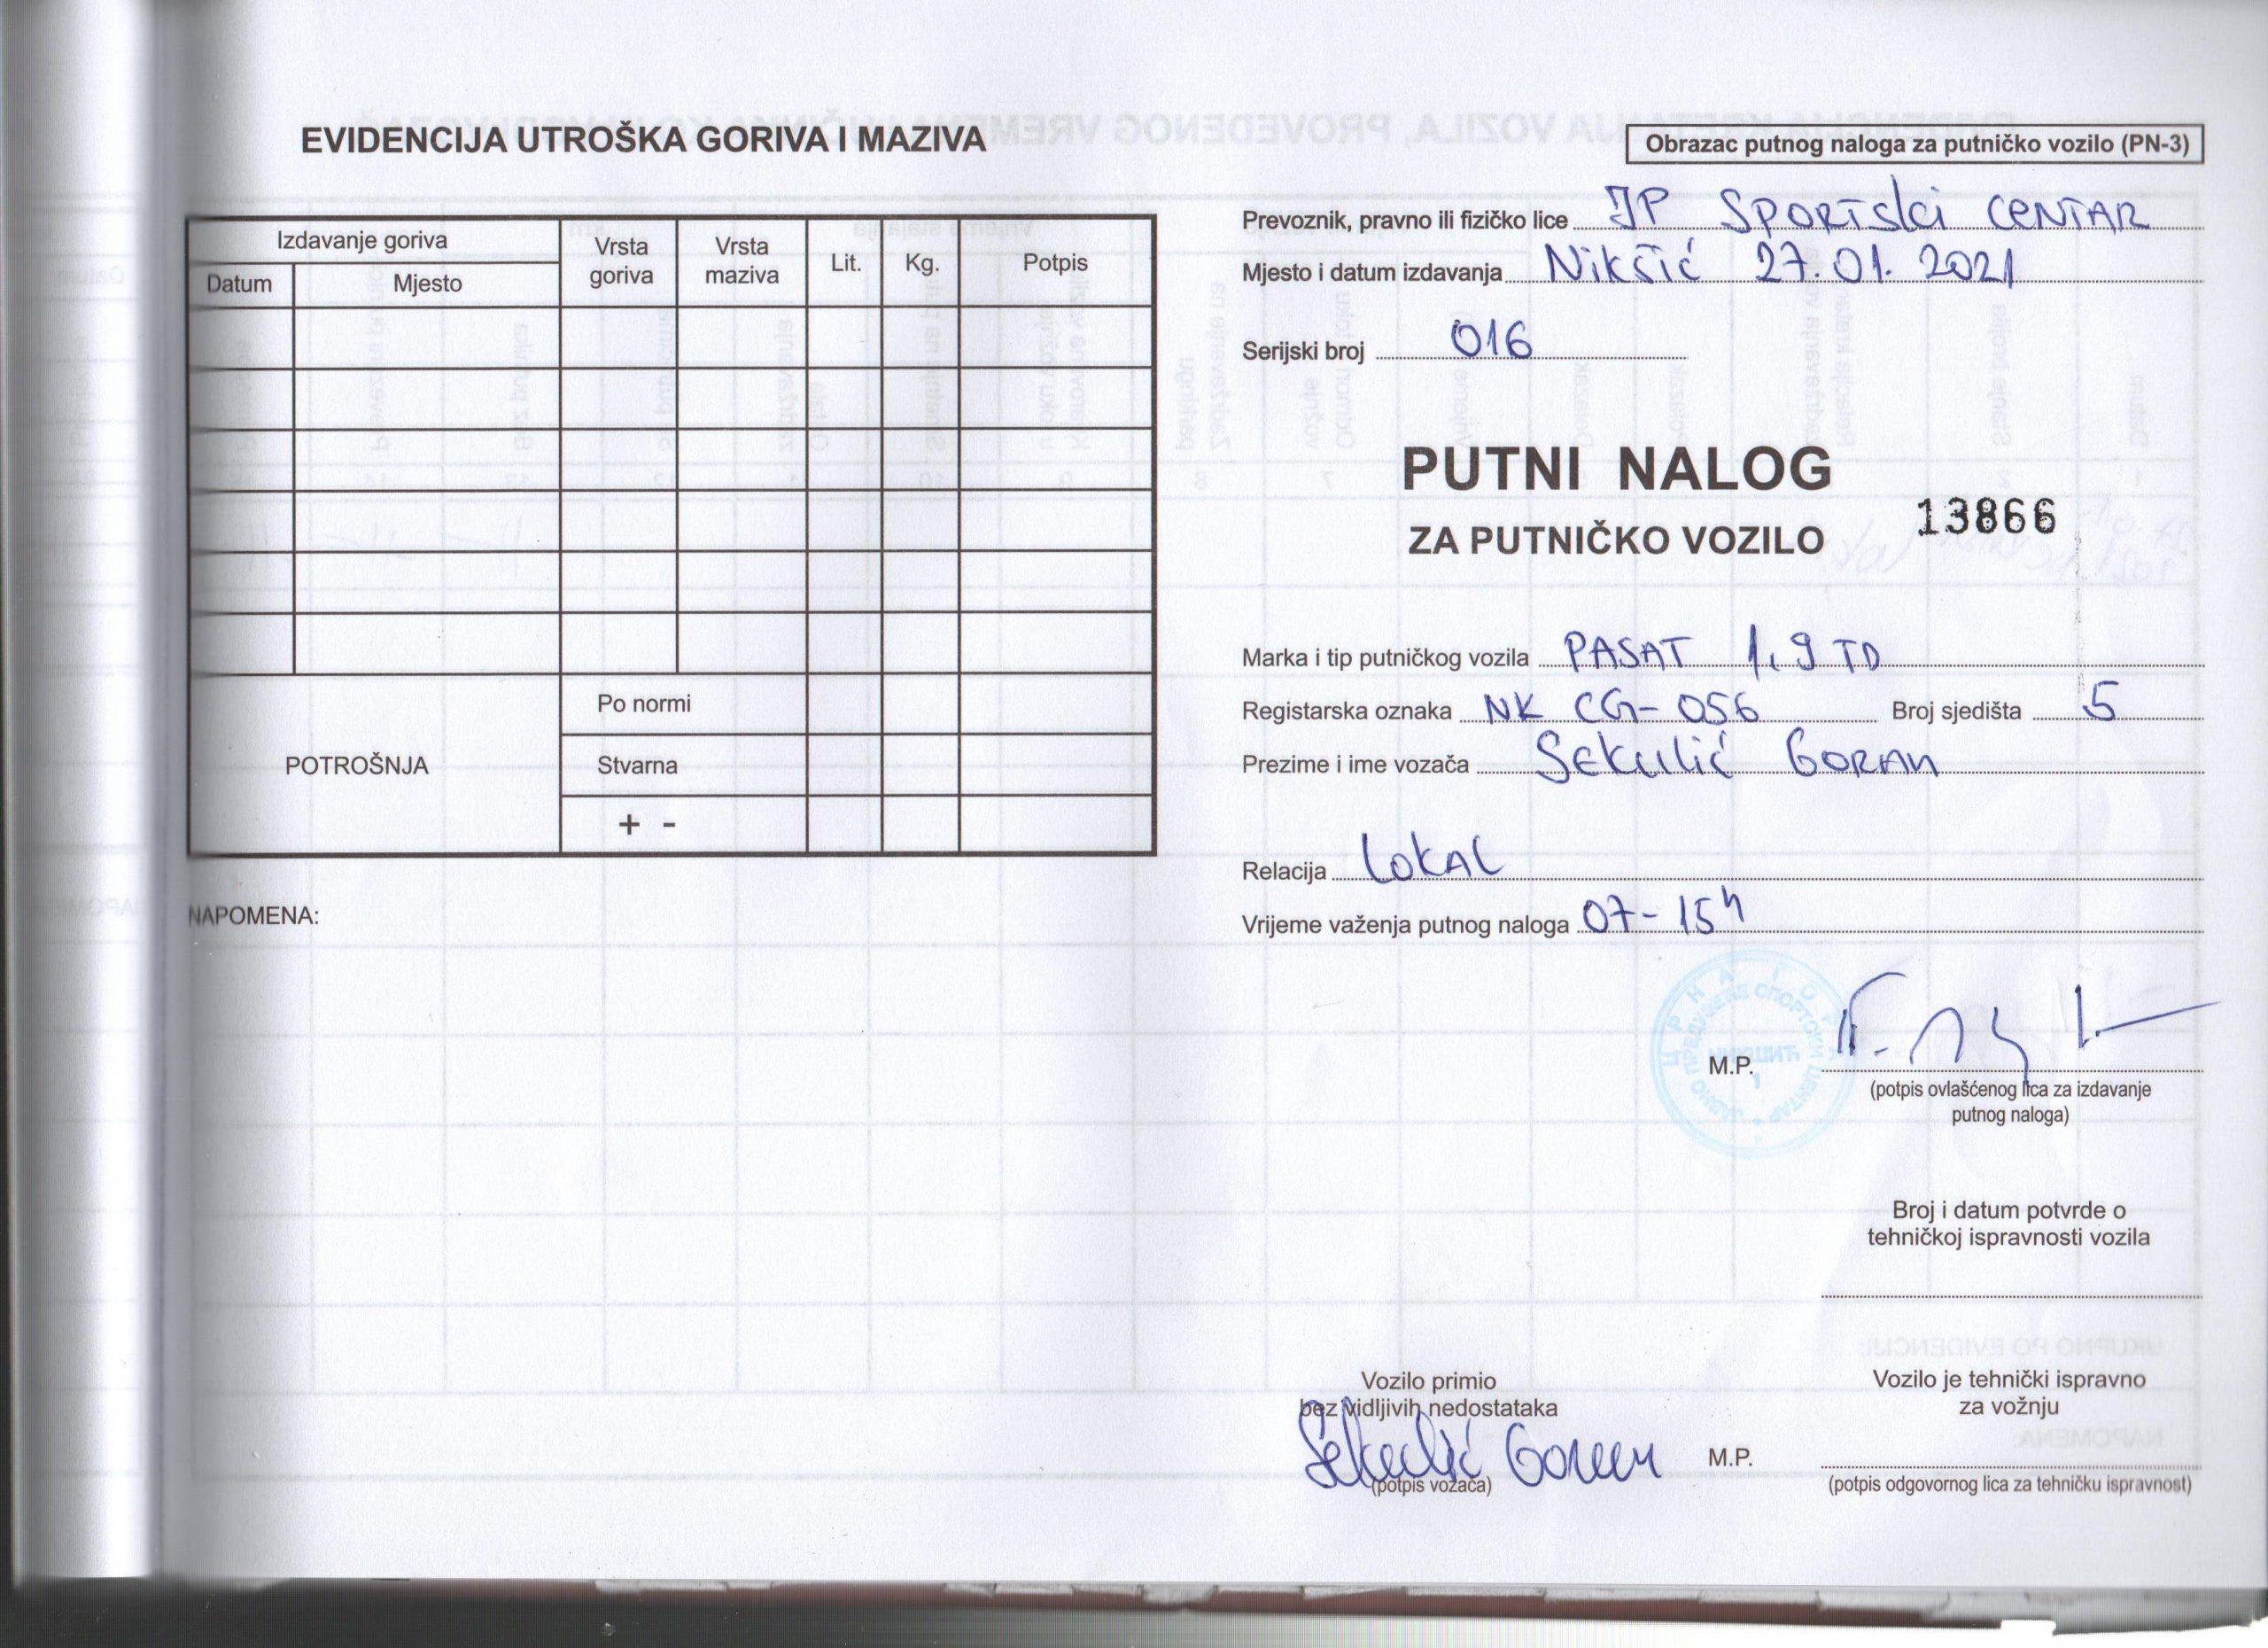 EVIDENCIJA UTROŠKA GORIVA I MAZIVA
Izdavanje goriva
Datum
Mjesto
Vrsta goriva
Vrsta maziva
Lit.
Kg.
Potpis
POTROŠNJA
Po normi
Stvarna
+ -
NAPOMENA:
Obrazac putnog naloga za putničko vozilo (PN-3)
Prevoznik, pravno ili fizičko lice JP SPORTSKI CENTAR
Mjesto i datum izdavanja Nikšić 27.01.2021
Serijski broj 016
PUTNI NALOG
ZA PUTNIČKO VOZILO
13866
Marka i tip putničkog vozila PASAT 1.9 TD
Registarska oznaka NK CG-056 Broj sjedišta 5
Prezime i ime vozača Sekulić Goran
Relacija LOKAL
Vrijeme važenja putnog naloga 07-15h
ЦРНА ГОРА
ЈАВНО ПРЕДУЗЕЋЕ СПОРТСКИ ЦЕНТАР
НИКШИЋ
1
M.P.
(potpis ovlašćenog lica za izdavanje
putnog naloga)
Broj i datum potvrde o
tehničkoj ispravnosti vozila
Vozilo primio
bez vidljivih nedostataka
Sekulić Goran
(potpis vozača)
M.P.
Vozilo je tehnički ispravno
za vožnju
(potpis odgovornog lica za tehničku ispravnost)